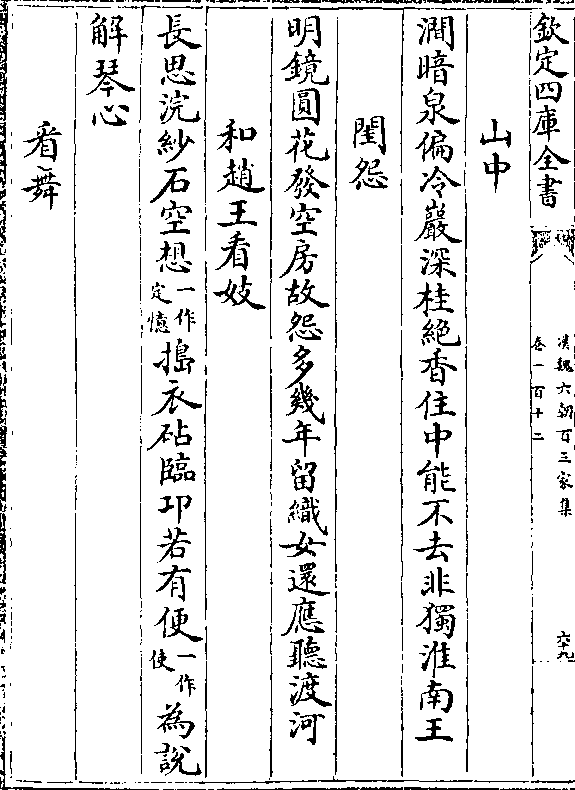 欽定四庫全書
漢魏六朝百三家集
卷一百十二
六十九
山中
澗暗泉偏冷巖深桂絕香住中能不去非獨淮南王
閨怨
明鏡圓花發空房故怨多幾年留織女還應聽渡河
和趙王看妓
長思浣紗石空想一作定憶搗衣砧臨卭若有便一作使為說
解琴心
看舞